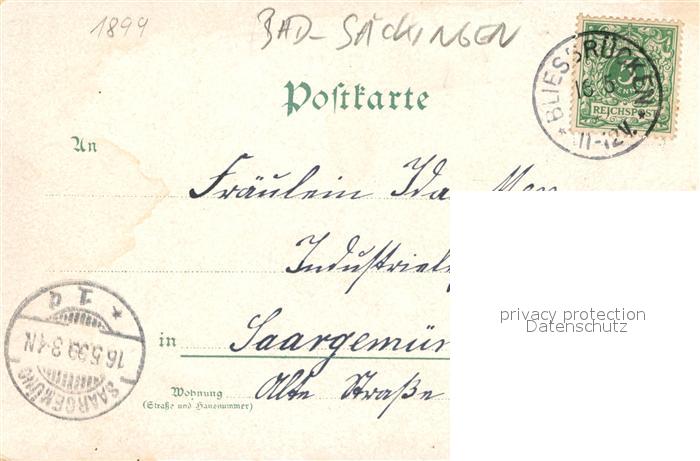 1899
BAD-SÄCKINGEN
BLIESBRÜCKEN
16.5
11-12V.
5
REICHSPOST
Postkarte
An
Fräulein Ida
Industriel
in Saargemün
Wohnung
(Straße und Hausnummer)
Alte Straße
SAARGEMÜND
16.5.99.3-4N
* 1 d
privacy protection
Datenschutz